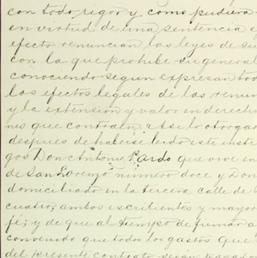 con todo rigor y como pudiera
en virtud de una sentencia e
efecto renuncian las leyes de su
con la que prohibe su general
conociendo segun expresan tod
los efectos legales de las renun
y la extension y valor en derech
nes que contraen. Asi lo otorga
despues de haberse leido este inst
gos Don Antonio Pardo que vive en
de San Lorenzo número doce y Don
domiciliado en la tercera calle de
cuatro; ambos escribientes y mayor
fi; y de que al tiempo de firmar a
convenido que todos los gastos que
del presente contrato sean pagados